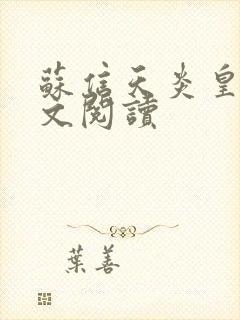 蘇信天炎皇
文閱讀
葉善